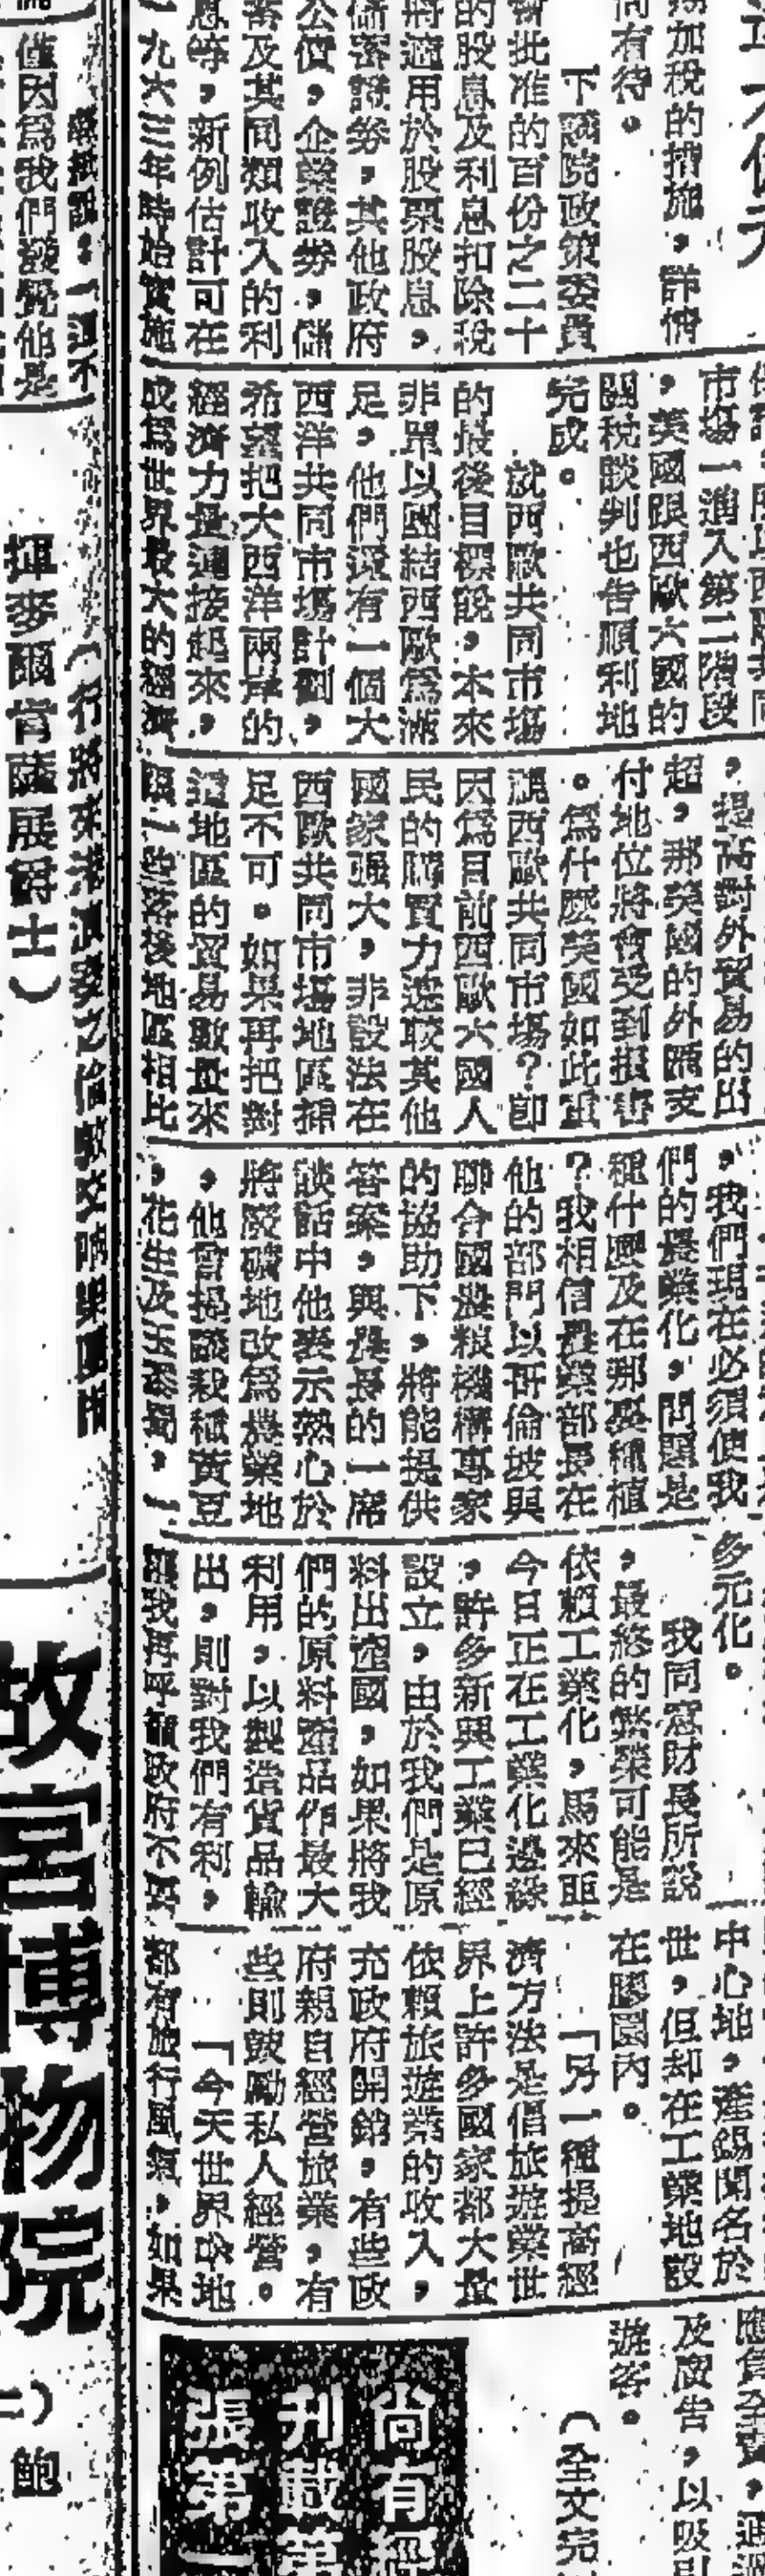 爲加稅的措施，詳情
尚有待。
下議院政策委員
會批准的百份之二十
的股息及利息扣除稅
將適用於股票股息，
儲蓄證券，其他政府
公債，企業證券，儲
蓄及其同類收入的利
息等，新例估計可在
一九六三年時始實施
市場一進入第二階段
，美國跟西歐六國的
關稅談判也告順利地
完成。
就西歐共同市場
的最後目標說，本來
非單以團結西歐爲滿
足，他們還有一個大
西洋共同市場計劃，
希望把大西洋兩岸的
經濟力量連接起來，
成爲世界最大的經濟
，提高對外貿易的出
超，那美國的外匯支
付地位將會受到損害
。爲什麽美國如此重
視西歐共同市場？即
因爲目前西歐六國人
民的購買力遠較其他
國家强大，非設法在
西歐共同市場地區插
足不可。如果再把對
這地區的貿易數量來
跟一些落後地區相比
，我們現在必須使我
們的農業化，問題是
種什麽及在那裏種植
？我相信農業部長在
他的部門以研倫坡與
聯合國農粮機構專家
的協助下，將能提供
答案，與農長的一席
談話中他表示熱心於
將廢礦地改爲農業地
，他曾提議栽種黃豆
，花生及玉蜀黍，一
多元化。
我同意財長所說
，最終的繁榮可能是
依賴工業化，馬來亞
今日正在工業化邊緣
，許多新興工業已經
設立，由於我們是原
料出產國，如果將我
們的原料產品作最大
利用，以製造貨品輸
出，則對我們有利，
讓我再呼籲政府不要
中心地，產錫聞名於
世，但却在工業地設
在膠園內。
「另一種提高經
濟方法是倡旅遊業世
界上許多國家都大量
依賴旅遊業的收入，
充政府開銷，有些政
府親自經營旅業，有
些則鼓勵私人經營。
「今天世界各地
都有旅行風氣，如果
及廣告，以吸引
遊客。
（全文完
尚有經
刋載第
張第一
僅因爲我們發覺他是
揮麥爾肯薩展爵士）
故宮博物院
二）鮑